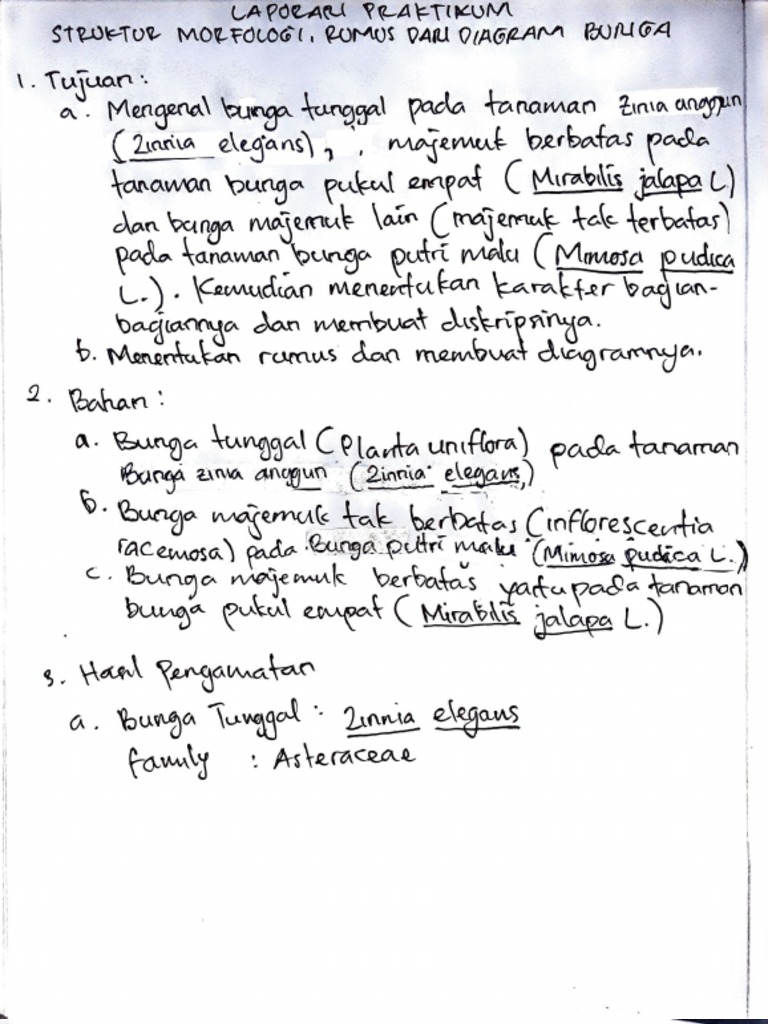 LAPORAN PRAKTIKUM
STRUKTUR MORFOLOGI, RUMUS DAN DIAGRAM BUNGA
1. Tujuan :
a. Mengenal bunga tunggal pada tanaman Zinia anggun
(Zinnia elegans), , majemuk berbatas pada
tanaman bunga pukul empat (Mirabilis jalapa L)
dan bunga majemuk lain (majemuk tak terbatas)
pada tanaman bunga putri malu (Mimosa pudica
L.). Kemudian menentukan karakter bagian-
bagiannya dan membuat diskripsinya.
b. Menentukan rumus dan membuat diagramnya.
2. Bahan :
a. Bunga tunggal (Planta uniflora) pada tanaman
Bunga zinia anggun (Zinnia elegans,)
b. Bunga majemuk tak berbatas (inflorescentia
racemosa) pada Bunga putri malu (Mimosa pudica L.)
c. Bunga majemuk berbatas yaitu pada tanaman
bunga pukul empat (Mirabilis jalapa L.)
3. Hasil Pengamatan
a. Bunga Tunggal : Zinnia elegans
family : Asteraceae